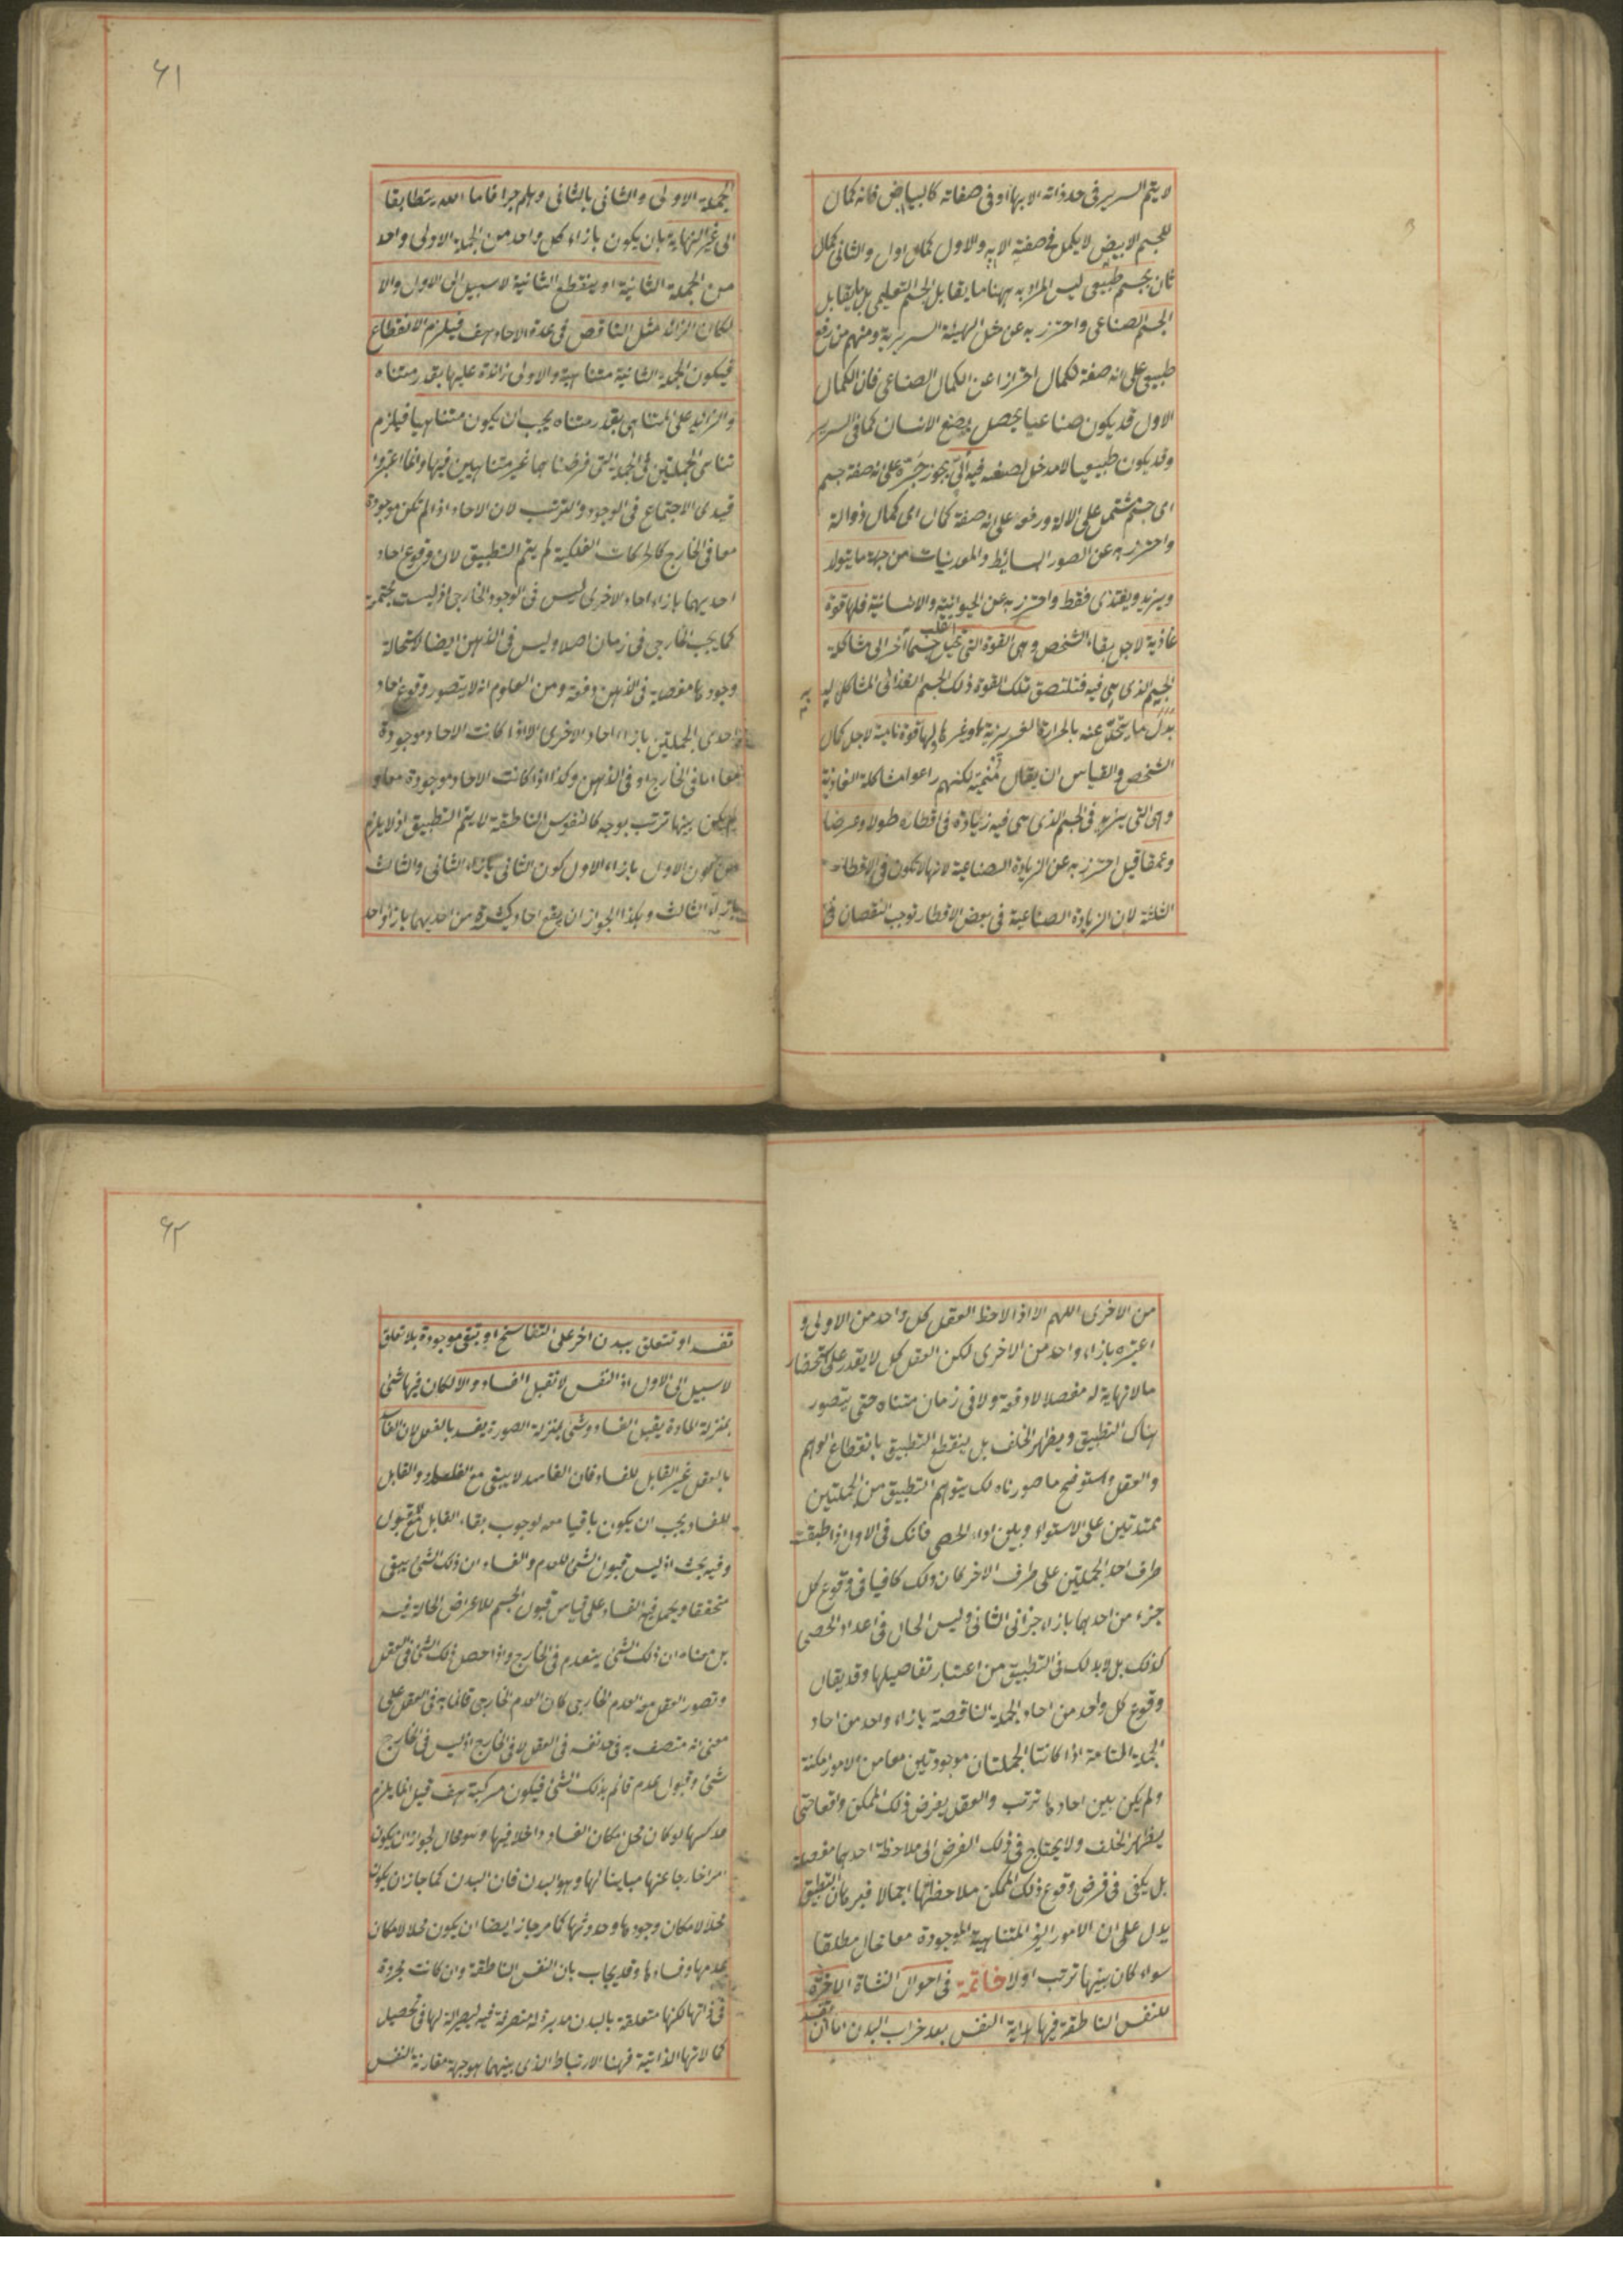 لا يتم السرير فى حد ذاته الا بها او فى صفاته كالبياض فانه كمال
للجسم الابيض لا يكمل فى صفته الا به والاول كمال اول والثانى كمال
ثان بجسم طبيعى ليس المراد به ههنا ما يقابل الجسم التعليمى بل ما يقابل
الجسم الصناعى واحترز به عن مثل الهيئة السريرية ومنهم من رفع
طبيعى على انه صفة لكمال احترازا عن الكمال الصناعى فان الكمال
الاول قد يكون صناعيا يحصل بصنع الانسان كما فى السرير
وقد يكون طبيعيا لا مدخل لصنعه فيه آلى يجوز جره على انه صفة جسم
اى جسم مشتمل على الالة ورفعه على انه صفة كمال اى كمال ذو الة
واحترز به عن الصور البسائط والمعدنيات من جهة ما يتولد
ويزيد ويغتذى فقط واحترز به عن الحيوانية والانسانية فلها قوة
غاذية لاجل بقاء الشخص وهى القوة التى تحيل جسما آخر الى مشاكلة
الجسم الذى هى فيه فتلتصق تلك القوة ذلك الجسم الغذائى المشاكل له به
بدل ما يتحلل عنه بالحرارة الغريزية او غيرها ولها قوة نامية لاجل كمال
الشخص والقياس ان يقال منمية لكنهم راعوا مشاكلة الغاذية
وهى التى يزيد فى الجسم الذى هى فيه زيادة فى اقطاره طولا وعرضا
وعمقا قيل احترز به عن الزيادة الصناعية لانها لا تكون فى الاقطار
الثلثة لان الزيادة الصناعية فى بعض الاقطار توجب النقصان فى
٦١
الجملة الاولى والثانى بالثانى وهلم جرا فاما ان يتطابقا
الى غير النهاية بان يكون بازاء كل واحد من الجملة الاولى واحد
من الجملة الثانية او ينقطع الثانية لا سبيل الى الاول والا
لكان الزائد مثل الناقص فى عدة الاحاد هف فيلزم الانقطاع
فيكون الجملة الثانية متناهية والاولى زائدة عليها بقدر متناه
والزائد على المتناهى بقدر متناه يجب ان يكون متناهيا فيلزم
تناهى الجملتين فى الجهة التى فرضناهما غير متناهيين فيها وانما اعتبروا
قيدى الاجتماع فى الوجود والترتب لان الاحاد اذا لم تكن موجودة
معا فى الخارج كالحركات الفلكية لم يتم التطبيق لان وقوع احاد
احديهما بازاء احاد الاخرى ليس فى الوجود الخارجى اذ ليست مجتمعة
كما يجب الخارجى فى زمان اصلا وليس فى الذهن ايضا لاستحالة
وجودها مفصلة فى الذهن دفعة ومن المعلوم انه لا يتصور وقوع احاد
احدى الجملتين بازاء احاد الاخرى الا اذا كانت الاحاد موجودة
معا اما فى الخارج او فى الذهن وكذا اذا كانت الاحاد موجودة معا و
لم يكن بينها ترتب بوجه كالنفوس الناطقة لا يتم التطبيق اذ لا يلزم
من كون الاول بازاء الاول كون الثانى بازاء الثانى والثالث
بازاء الثالث وهكذا لجواز ان يقع احاد كثيرة من احديهما بازاء واحد
من الاخرى اللهم الا اذا لاحظ العقل كل واحد من الاولى و
اعتبره بازاء واحد من الاخرى لكن العقل كل لا يقدر على استحضار
ما لا نهاية له مفصلا لا دفعة ولا فى زمان متناه حتى يتصور
هناك التطبيق ويظهر الخلف بل ينقطع التطبيق بانقطاع الوهم
والعقل واستوضح ما صورناه لك بتوهم التطبيق من الجملتين
ممتدتين على الاستواء وبين اعداد الحصى فانك فى الاول اذا طبقت
طرف احد الجملتين على طرف الاخر كان ذلك كافيا فى وقوع كل
جزء من احدهما بازاء جزء من الثانى وليس الحال فى اعداد الحصى
كذلك بل لا بد لك فى التطبيق من اعتبار تفاصيلها وقد يقال
وقوع كل واحد من احاد الجملة الناقصة بازاء واحد من احاد
الجملة التامة اذا كانتا الجملتان موجودتين معا من الامور الممكنة
ولم يكن بين احادها ترتب والعقل يفرض ذلك الممكن واقعا حتى
يظهر الخلف ولا يحتاج فى ذلك الفرض الى ملاحظة احدهما مفصلة
بل يكفى فى فرض وقوع ذلك الممكن ملاحظتها اجمالا فبرهان التطبيق
يدل على ان الامور الغير المتناهية الموجودة معا محال مطلقا
سواء كان بينها ترتب او لا خاتمة فى احوال النشاة الاخرة
للنفس الناطقة فيها هداية النفس بعد خراب البدن اما ان
٦٢
تفسد او تتعلق ببدن اخر على التناسخ او تبقى موجودة بلا تعلق
لا سبيل الى الاول اذ النفس لا تقبل الفساد والا لكان فيها شئ
بمنزلة المادة يقبل الفساد وشئ بمنزلة الصورة يفسد بالفعل لان الفاسد
بالفعل غير القابل للفساد فان الفاسد لا يبقى مع الفساد والقابل
للفساد يجب ان يكون باقيا معه لوجوب بقاء القابل مع المقبول
وفيه بحث اذ ليس قبول الشئ للعدم والفساد ان ذلك الشئ يبقى
متحققا ويحل فيه الفساد على قياس قبول الجسم للاعراض الحالة فيه
بل معناه ان ذلك الشئ ينعدم فى الخارج واذا حصل ذلك الشئ فى العقل
وتصور العقل معه العدم الخارجى كان العدم الخارجى قائما به فى العقل على
معنى انه متصف به فى حد نفسه فى العقل لا فى الخارج اذ ليس فى الخارج
شئ وقبول عدم قائم بذلك الشئ فيكون مركبة هف قيل انما يلزم
لو كان محل امكان الفساد داخلا فيها وهو محال لجواز ان يكون
امرا خارجا عنها مباينا لها وهو البدن فان البدن كما جاز ان يكون
محلا لامكان وجودها وحدوثها كما مر جاز ايضا ان يكون محلا لامكان
عدمها وفسادها وقد يجاب بان النفس الناطقة وان كانت مجردة
فى ذاتها لكنها متعلقة بالبدن مدبرة له متصرفة فيه ليصير الة لها فى تحصيل
كمالاتها الذاتية فهذا الارتباط الذى بينهما هو جهة مقارنة النفس